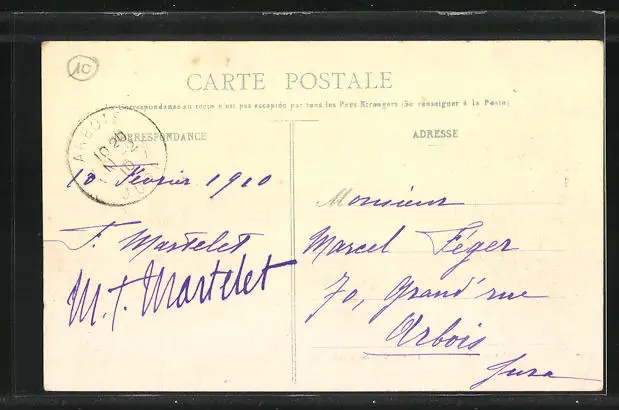 10
CARTE POSTALE
La Correspondance au recto n'est pas acceptée par tous les Pays Etrangers (Se renseigner à la Poste)
CORRESPONDANCE
ADRESSE
ARBOIS
10 Février 1910
F. Martelet
M. T. Martelet
Monsieur
Marcel Féger
70, Grand'rue
Arbois
Jura